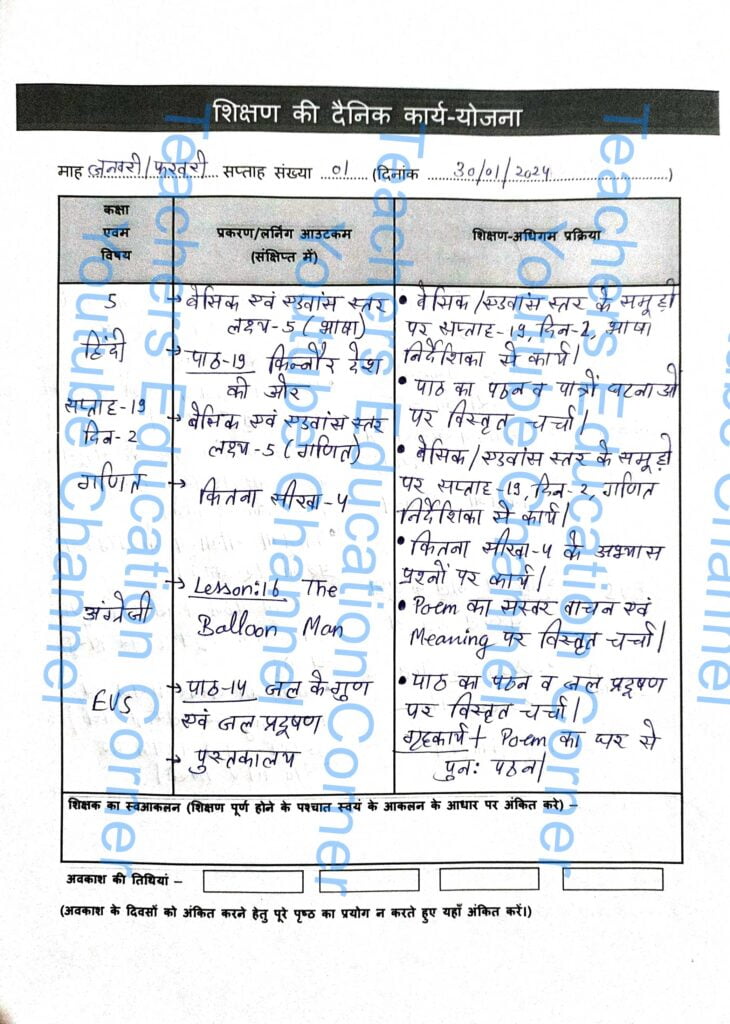 शिक्षण की दैनिक कार्य-योजना
माह जनवरी/फरवरी सप्ताह संख्या 01 (दिनांक 30/01/2024)
कक्षा
एवम
विषय
प्रकरण/लर्निंग आउटकम
(संक्षिप्त में)
शिक्षण-अधिगम प्रक्रिया
5
हिंदी
सप्ताह-19
दिन-2
गणित
अंग्रेजी
EVS
→ बेसिक एवं एडवांस स्तर
लक्ष्य-5 (भाषा)
→ पाठ-19 किन्नौर देश
की ओर
→ बेसिक एवं एडवांस स्तर
लक्ष्य-5 (गणित)
→ कितना सीखा-4
→ Lesson:16 The
Balloon Man
→ पाठ-14 जल के गुण
एवं जल प्रदूषण
→ पुस्तकालय
• बेसिक/एडवांस स्तर के समूहों
पर सप्ताह-19, दिन-2, भाषा
निर्देशिका से कार्य।
• पाठ का पठन व पात्रों घटनाओं
पर विस्तृत चर्चा।
• बेसिक/एडवांस स्तर के समूहों
पर सप्ताह-19, दिन-2, गणित
निर्देशिका से कार्य।
• कितना सीखा-4 के अभ्यास
प्रश्नों पर कार्य।
• Poem का सस्वर वाचन एवं
Meaning पर विस्तृत चर्चा।
• पाठ का पठन व जल प्रदूषण
पर विस्तृत चर्चा।
गृहकार्य + Poem का घर से
पुनः पठन।
शिक्षक का स्वआकलन (शिक्षण पूर्ण होने के पश्चात स्वयं के आकलन के आधार पर अंकित करे) –
अवकाश की तिथियां –
(अवकाश के दिवसों को अंकित करने हेतु पूरे पृष्ठ का प्रयोग न करते हुए यहाँ अंकित करें।)
Teachers Education Corner
Youtube Channel
Teachers Education Corner
Youtube Channel
Teachers Education Corner
Youtube Channel